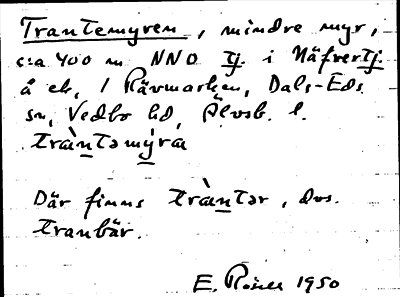 Trantemyren, mindre myr,
c:a 400 m NNO tj. i Näfvertj.
å ek, / Rävmarken, Dals-Eds
sn, Vedbo hd, Älvsb. l.
tràntəmýra
Där finns tràntər, dvs.
tranbär.
E. Rosell 1950